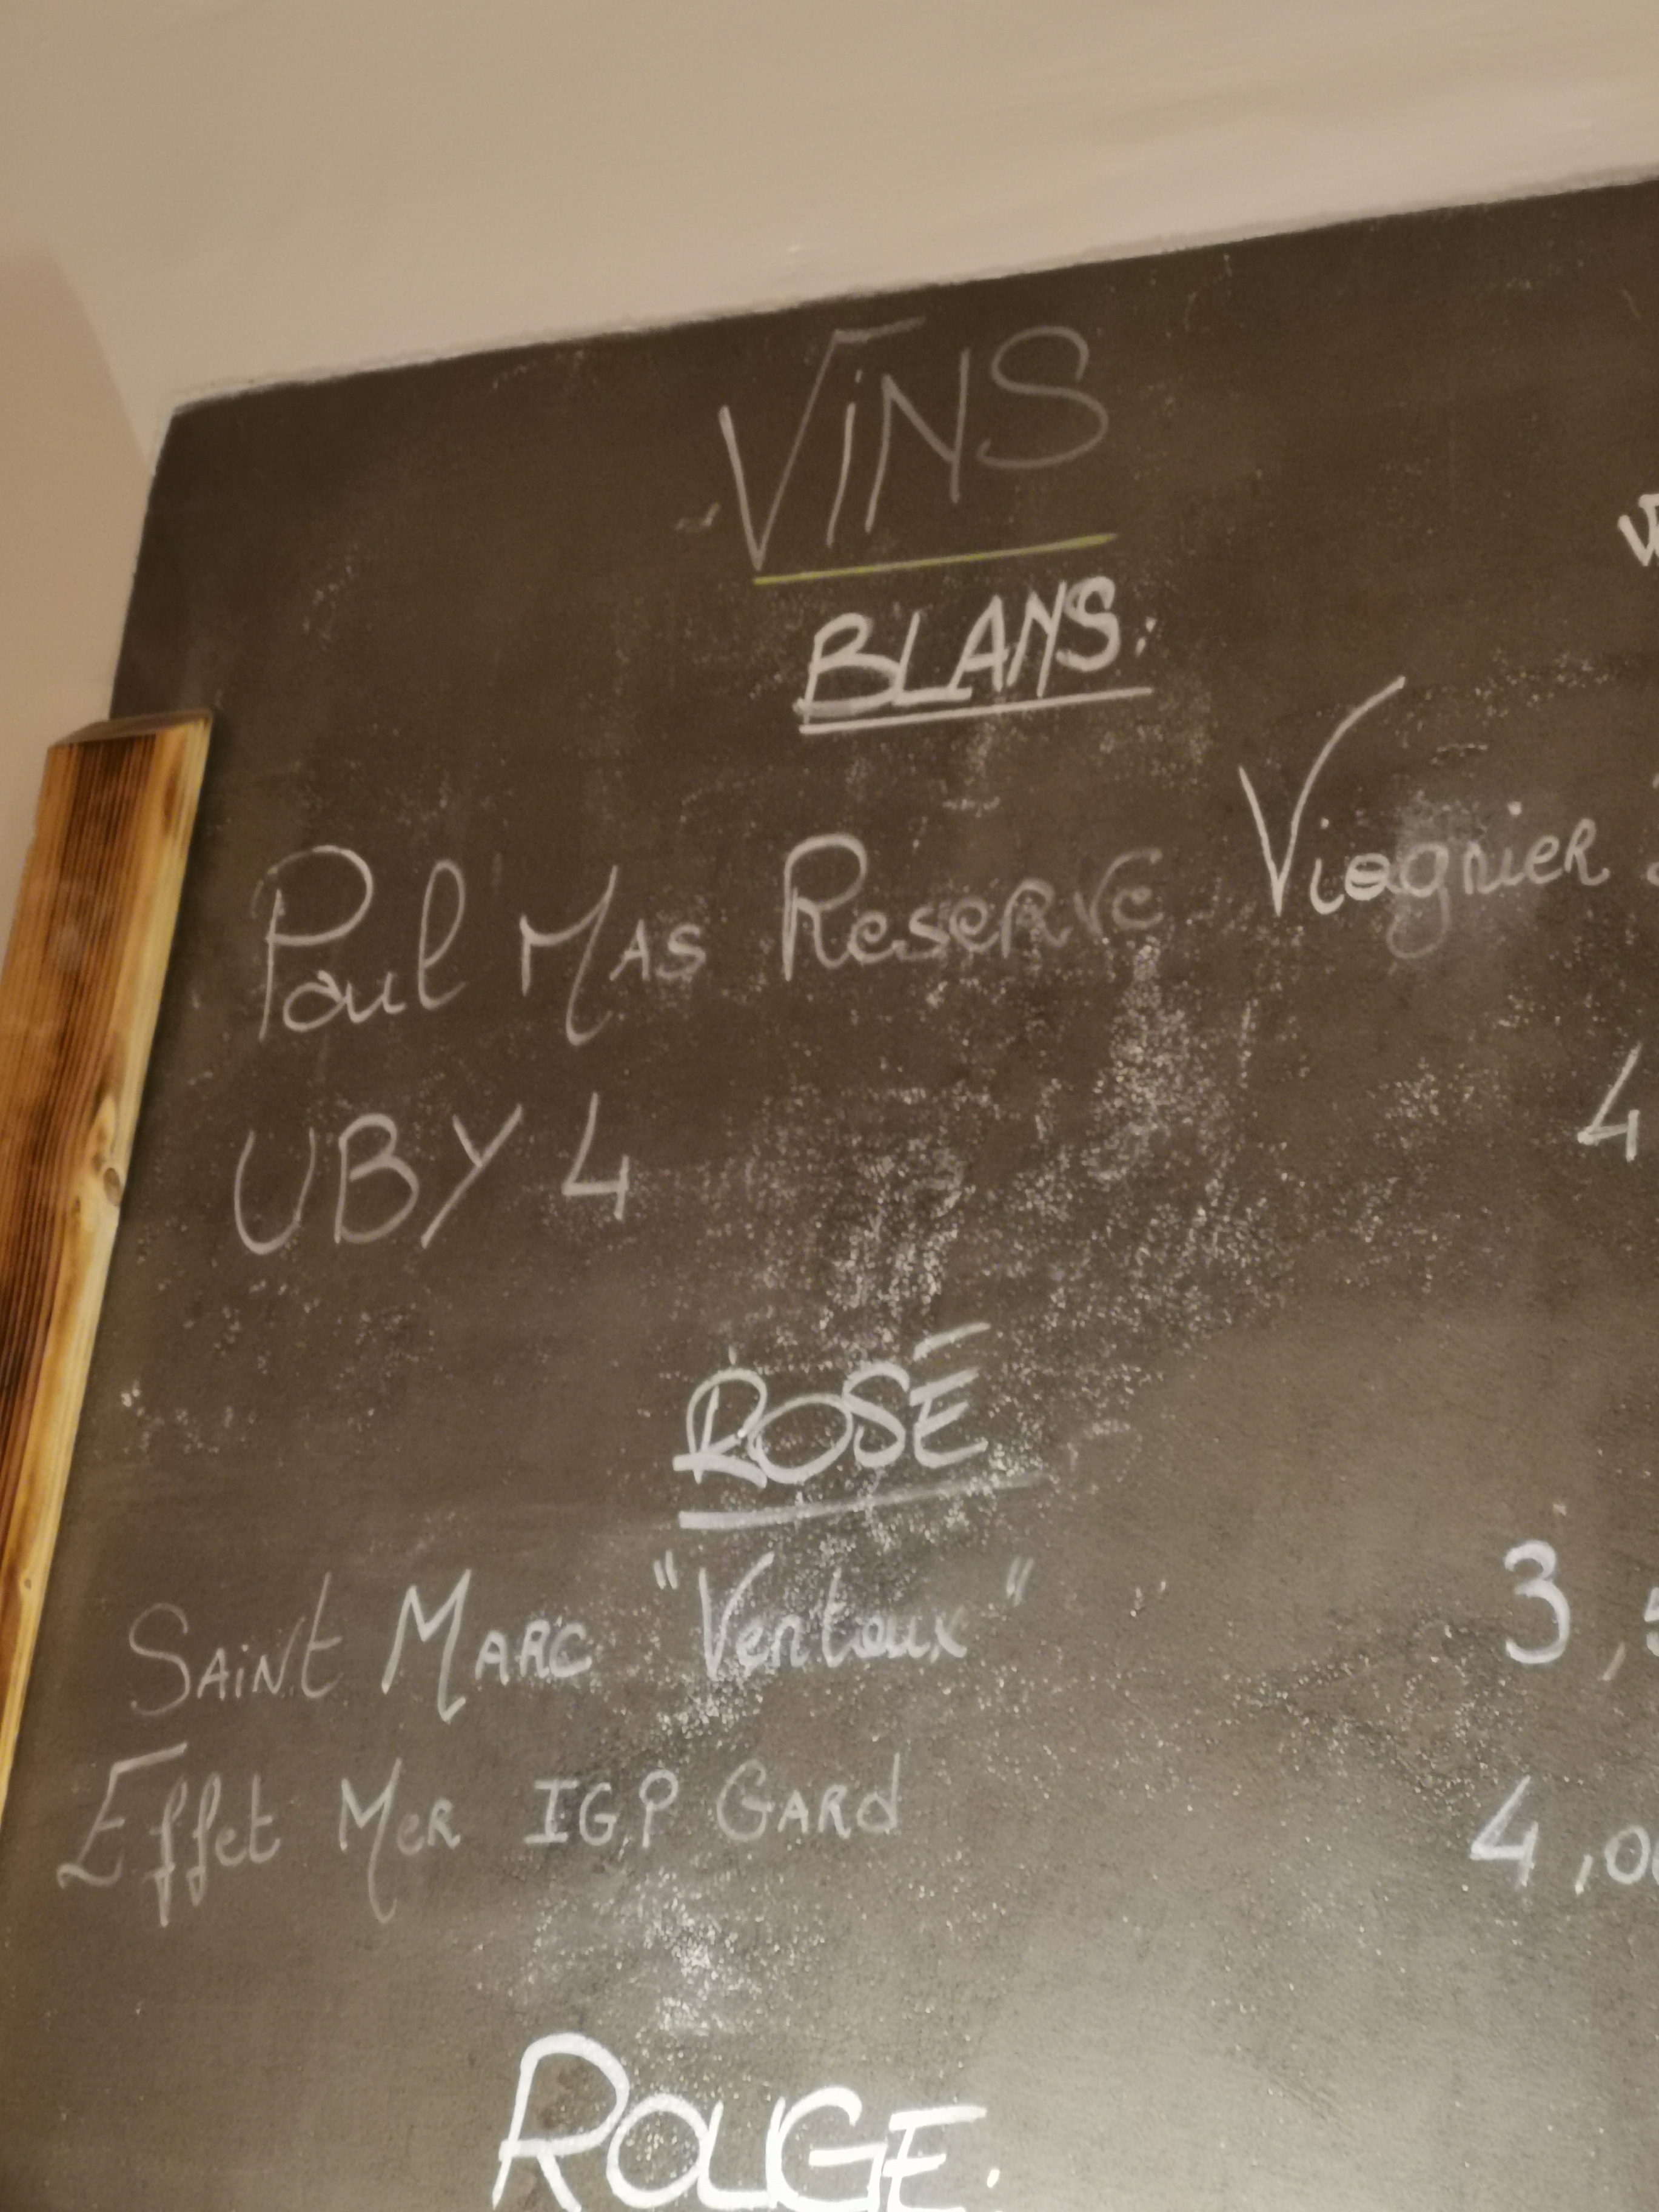 ViNS
BLANS:
Paul MAS Reserve Viognier
UBY 4 4
ROSÉ
SAiNt MARC "Ventoux" 3,5
Effet MeR IGP GARd 4,00
ROUGE.